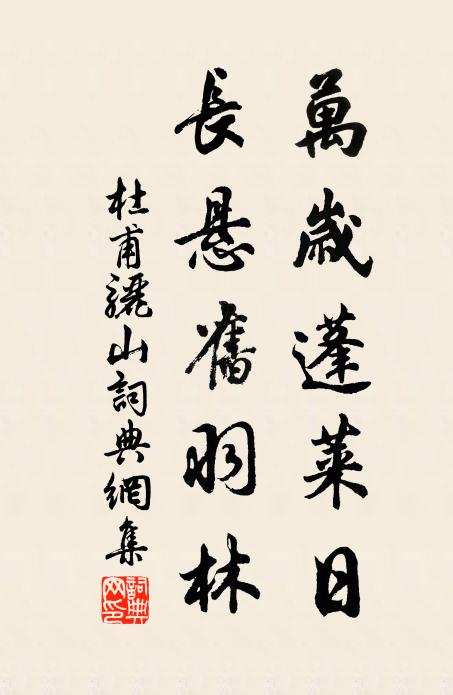 萬歲蓬萊日
長懸舊羽林
杜甫驪山詞典網集
詞典網印